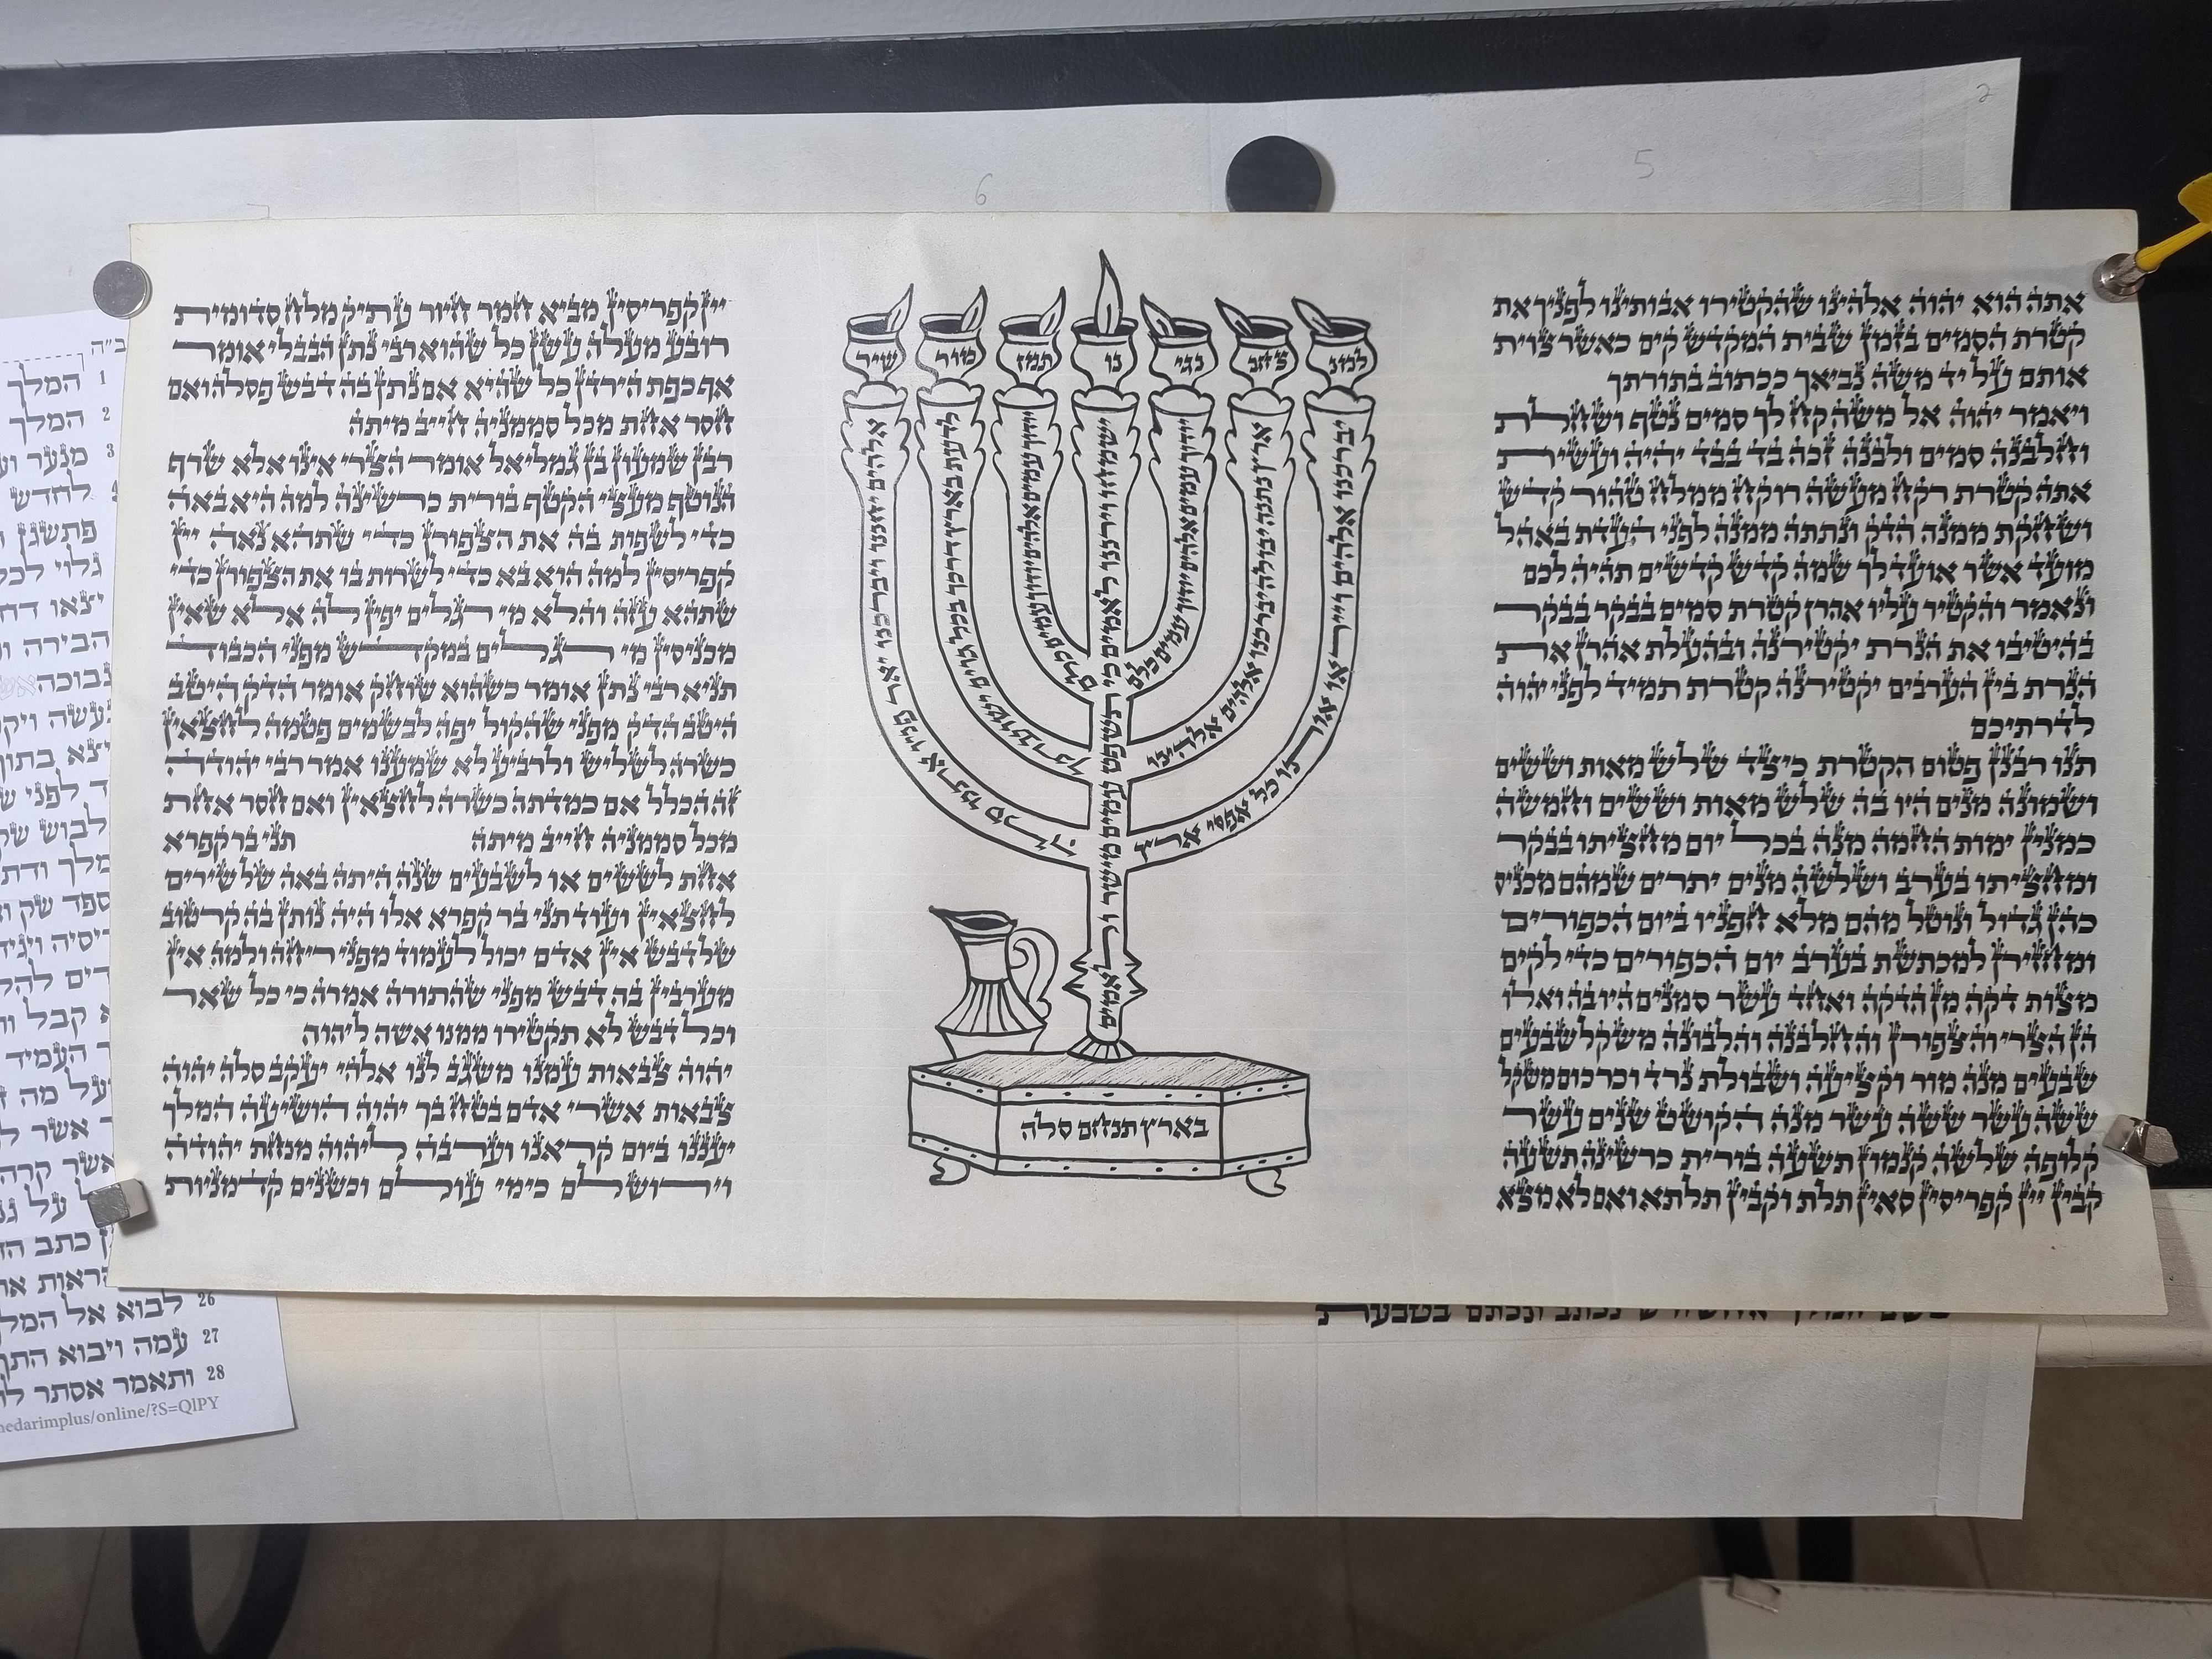 אתה הוא יהוה אלהינו שהקטירו אבותינו לפניך את
קטרת הסמים בזמן שבית המקדש קים כאשר צוית
אותם על יד משה נביאך ככתוב בתורתך
ויאמר יהוה אל משה קח לך סמים נטף ושחלת
וחלבנה סמים ולבנה זכה בד בבד יהיה ועשית
אתה קטרת רקח מעשה רוקח ממלח טהור קדש
ושחקת ממנה הדק ונתתה ממנה לפני העדת באהל
מועד אשר אועד לך שמה קדש קדשים תהיה לכם
ונאמר והקטיר עליו אהרן קטרת סמים בבקר בבקר
בהיטיבו את הנרת יקטירנה ובהעלת אהרן את
הנרת בין הערבים יקטירנה קטרת תמיד לפני יהוה
לדרתיכם
תנו רבנן פטום הקטרת כיצד שלש מאות וששים
ושמונה מנים היו בה שלש מאות וששים וחמשה
כמנין ימות החמה מנה בכל יום מחציתו בבקר
ומחציתו בערב ושלשה מנים יתרים שמהם מכניס
כהן גדול ונוטל מהם מלא חפניו ביום הכפורים
ומחזירן למכתשת בערב יום הכפורים כדי לקים
מצות דקה מן הדקה ואחד עשר סמנים היו בה ואלו
הן הצרי והצפורן והחלבנה והלבונה משקל שבעים
שבעים מנה מור וקציעה ושבולת נרד וכרכום משקל
ששה עשר ששה עשר מנה הקושט שנים עשר
קלופה שלשה קנמון תשעה בורית כרשינה תשעה
קבין יין קפריסין סאין תלת וקבין תלתא ואם לא מצא
אלהים יחננו ויברכנו יאר פניו אתנו סלה
לדעת בארץ דרכך בכל גוים ישועתך
יודוך עמים אלהים יודוך עמים כלם
ישמחו וירננו לאמים כי תשפט עמים מישר ולאמים
בארץ תנחם סלה
יודוך עמים אלהים יודוך עמים כלם
ארץ נתנה יבולה יברכנו אלהים אלהינו
יברכנו אלהים וייראו אותו כל אפסי ארץ
יין קפריסין מביא חמר חיור עתיק מלח סדומית
רובע מעלה עשן כל שהוא רבי נתן הבבלי אומר
אף כפת הירדן כל שהוא אם נתן בה דבש פסלה ואם
חסר אחת מכל סממניה חייב מיתה
רבן שמעון בן גמליאל אומר הצרי אינו אלא שרף
הנוטף מעצי הקטף בורית כרשינה למה היא באה
כדי לשפות בה את הצפורן כדי שתהא נאה יין
קפריסין למה הוא בא כדי לשרות בו את הצפורן כדי
שתהא עזה והלא מי רגלים יפין לה אלא שאין
מכניסין מי רגלים במקדש מפני הכבוד
תניא רבי נתן אומר כשהוא שוחק אומר הדק היטב
היטב הדק מפני שהקול יפה לבשמים פטמה לחצאין
כשרה לשליש ולרביע לא שמענו אמר רבי יהודה
זה הכלל אם כמדתה כשרה לחצאין ואם חסר אחת
מכל סממניה חייב מיתה תני בר קפרא
אחת לששים או לשבעים שנה היתה באה של שירים
לחצאין ועוד תני בר קפרא אלו היה נותן בה קורטוב
של דבש אין אדם יכול לעמוד מפני ריחה ולמה אין
מערבין בה דבש מפני שהתורה אמרה כי כל שאר
וכל דבש לא תקטירו ממנו אשה ליהוה
יהוה צבאות עמנו משגב לנו אלהי יעקב סלה יהוה
צבאות אשרי אדם בטח בך יהוה הושיעה המלך
יעננו ביום קראנו וערבה ליהוה מנחת יהודה
וירושלים כימי עולם וכשנים קדמניות